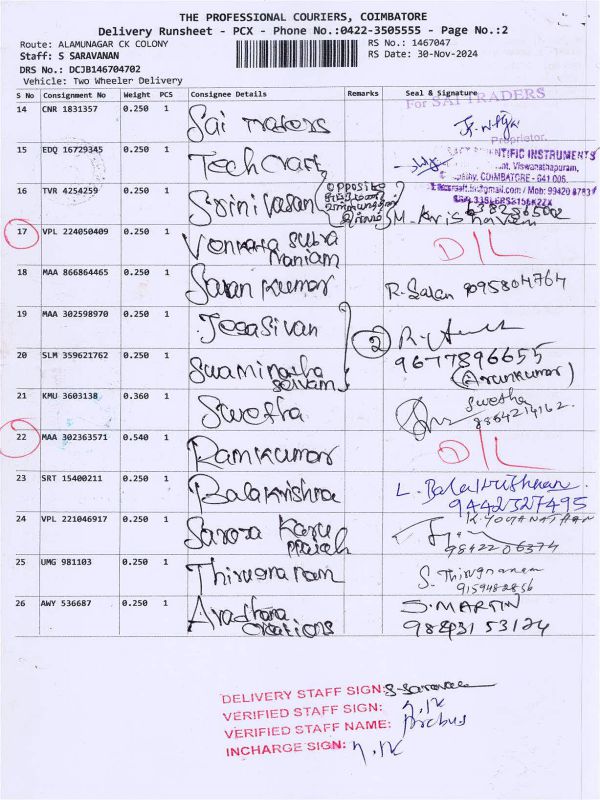 THE PROFESSIONAL COURIERS, COIMBATORE
Delivery Runsheet - PCX - Phone No.:0422-3505555 - Page No.:2
Route: ALAMUNAGAR CK COLONY
RS No.: 1467047
Staff: S SARAVANAN
RS Date: 30-Nov-2024
DRS No.: DCJB146704702
Vehicle: Two Wheeler Delivery
S No Consignment No Weight PCS Consignee Details Remarks Seal & Signature
For SAI TRADERS
14 CNR 1831357 0.250 1 Sai
Proprietor.
15 EDQ 16729345 0.250 1
NTIFIC INSTRUMENTS
Viswanathapuram,
COIMBATORE - 641 006.
16 TVR 4254259 0.250 1 Srinivasan opposite
M. Krishnaveni
17 VPL 224050409 0.250 1 Venkata Subra DIL
maniam
18 MAA 866864465 0.250 1 Saran Kumar R. Saran 9095804764
19 MAA 302598970 0.250 1 2
20 SLM 359621762 0.250 1 Swaminatha 9677896655
selvam (Arunkumar)
21 KMU 3603138 0.360 1 Swetha Swetha
22 MAA 302363571 0.540 1 Ramkumar DIL
23 SRT 15400211 0.250 1 Balakrishna L. Balakrishnan
9442327495
24 VPL 221046917 0.250 1 K. YOGANATHAN
9842206374
25 UMG 981103 0.250 1 Thirugnanam S. Thirugnanam
9159482856
26 AWY 536687 0.250 1 Aradhana S. MARTIN
creations 9843153124
DELIVERY STAFF SIGN:
VERIFIED STAFF SIGN:
VERIFIED STAFF NAME:
INCHARGE SIGN: